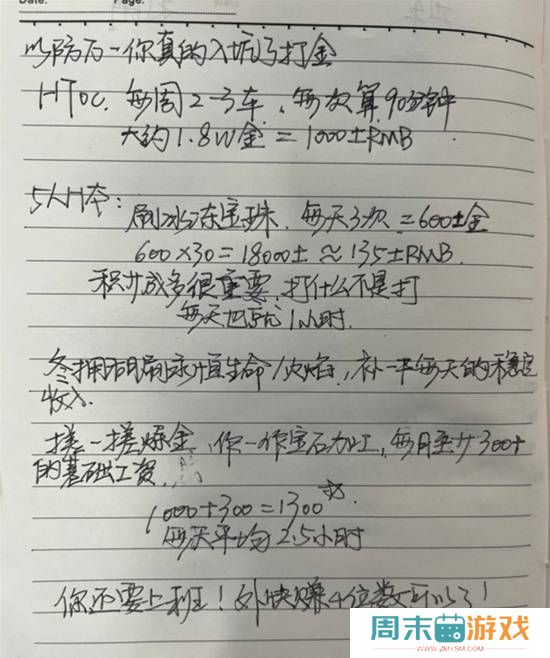 Date:
Page:
以防万一你真的入坑了打金
HTOC. 每周2-3车，每次算90分钟
大约1.8W金 = 1000±RMB
5人H本：
刷冰冻宝珠. 每天3次 = 600±金
600×30=18000± ≈ 135±RMB.
积少成多很重要，打什么不是打
每天也就1小时.
冬拥湖刷永恒生命/火焰，补一半每天的稳定
收入.
搓一搓炼金，你一作宝石加工，每月至少300+
的基础工资.
1000+300=1300
每天平均2.5小时
你还要上班！外快赚4位数可以了！
周末游戏
WWW.ZMYSM.COM